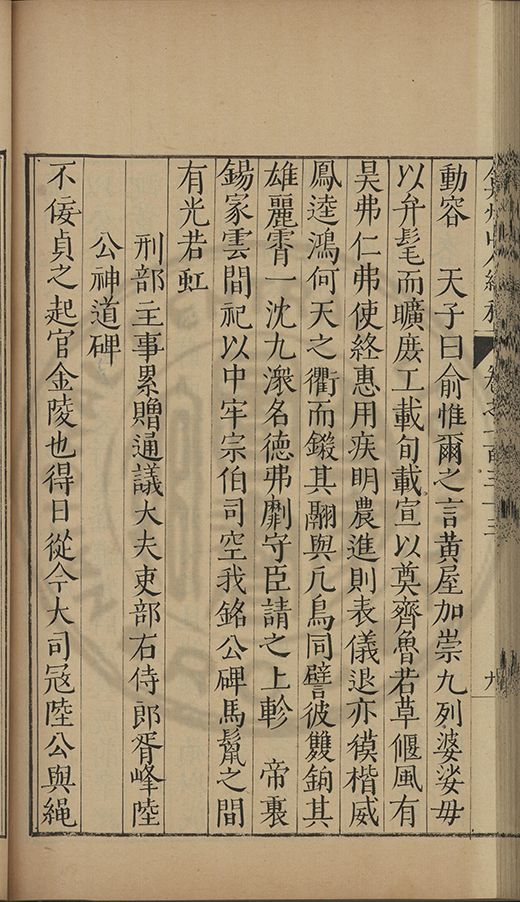 弇州山人續稿 卷之一百三十三 九
動容　天子曰俞惟爾之言黃屋加崇九列婆娑毋
以弁髦而曠庶工載旬載宣以奠齊魯若草偃風有
昊弗仁弗使終惠用疾明農進則表儀退亦模楷威
鳳逵鴻何天之衢而鎩其翮與凡鳥同譬彼雙鉤其
雄麗霄一沈九淵名德弗劘守臣請之上軫　帝裏
錫家雲間祀以中牢宗伯司空我銘公碑馬鬣之間
有光若虹
刑部主事累贈通議大夫吏部右侍郎胥峰陸
公神道碑
不佞貞之起官金陵也得日從今大司寇陸公與繩